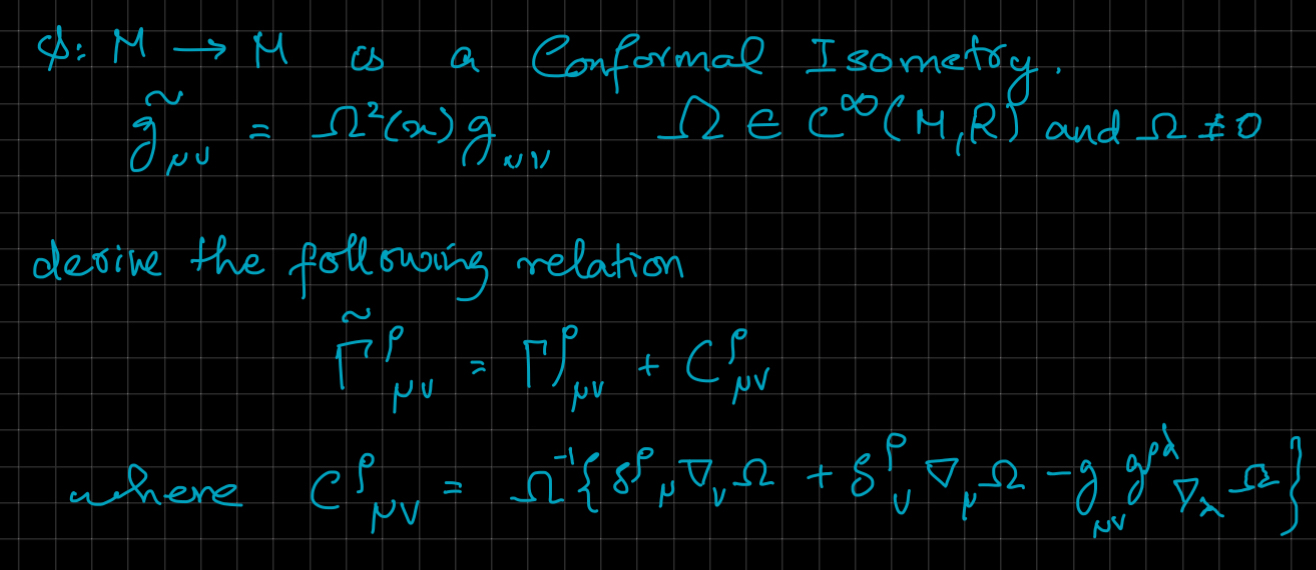 φ: M → M is a Conformal Isometry.
g̃_μν = Ω²(x) g_μν    Ω ∈ C^∞(M,R) and Ω ≠ 0
derive the following relation
Γ̃^ρ_μν = Γ^ρ_μν + C^ρ_μν
where C^ρ_μν = Ω⁻¹{δ^ρ_μ ∇_ν Ω + δ^ρ_ν ∇_μ Ω − g_μν g^ρλ ∇_λ Ω}